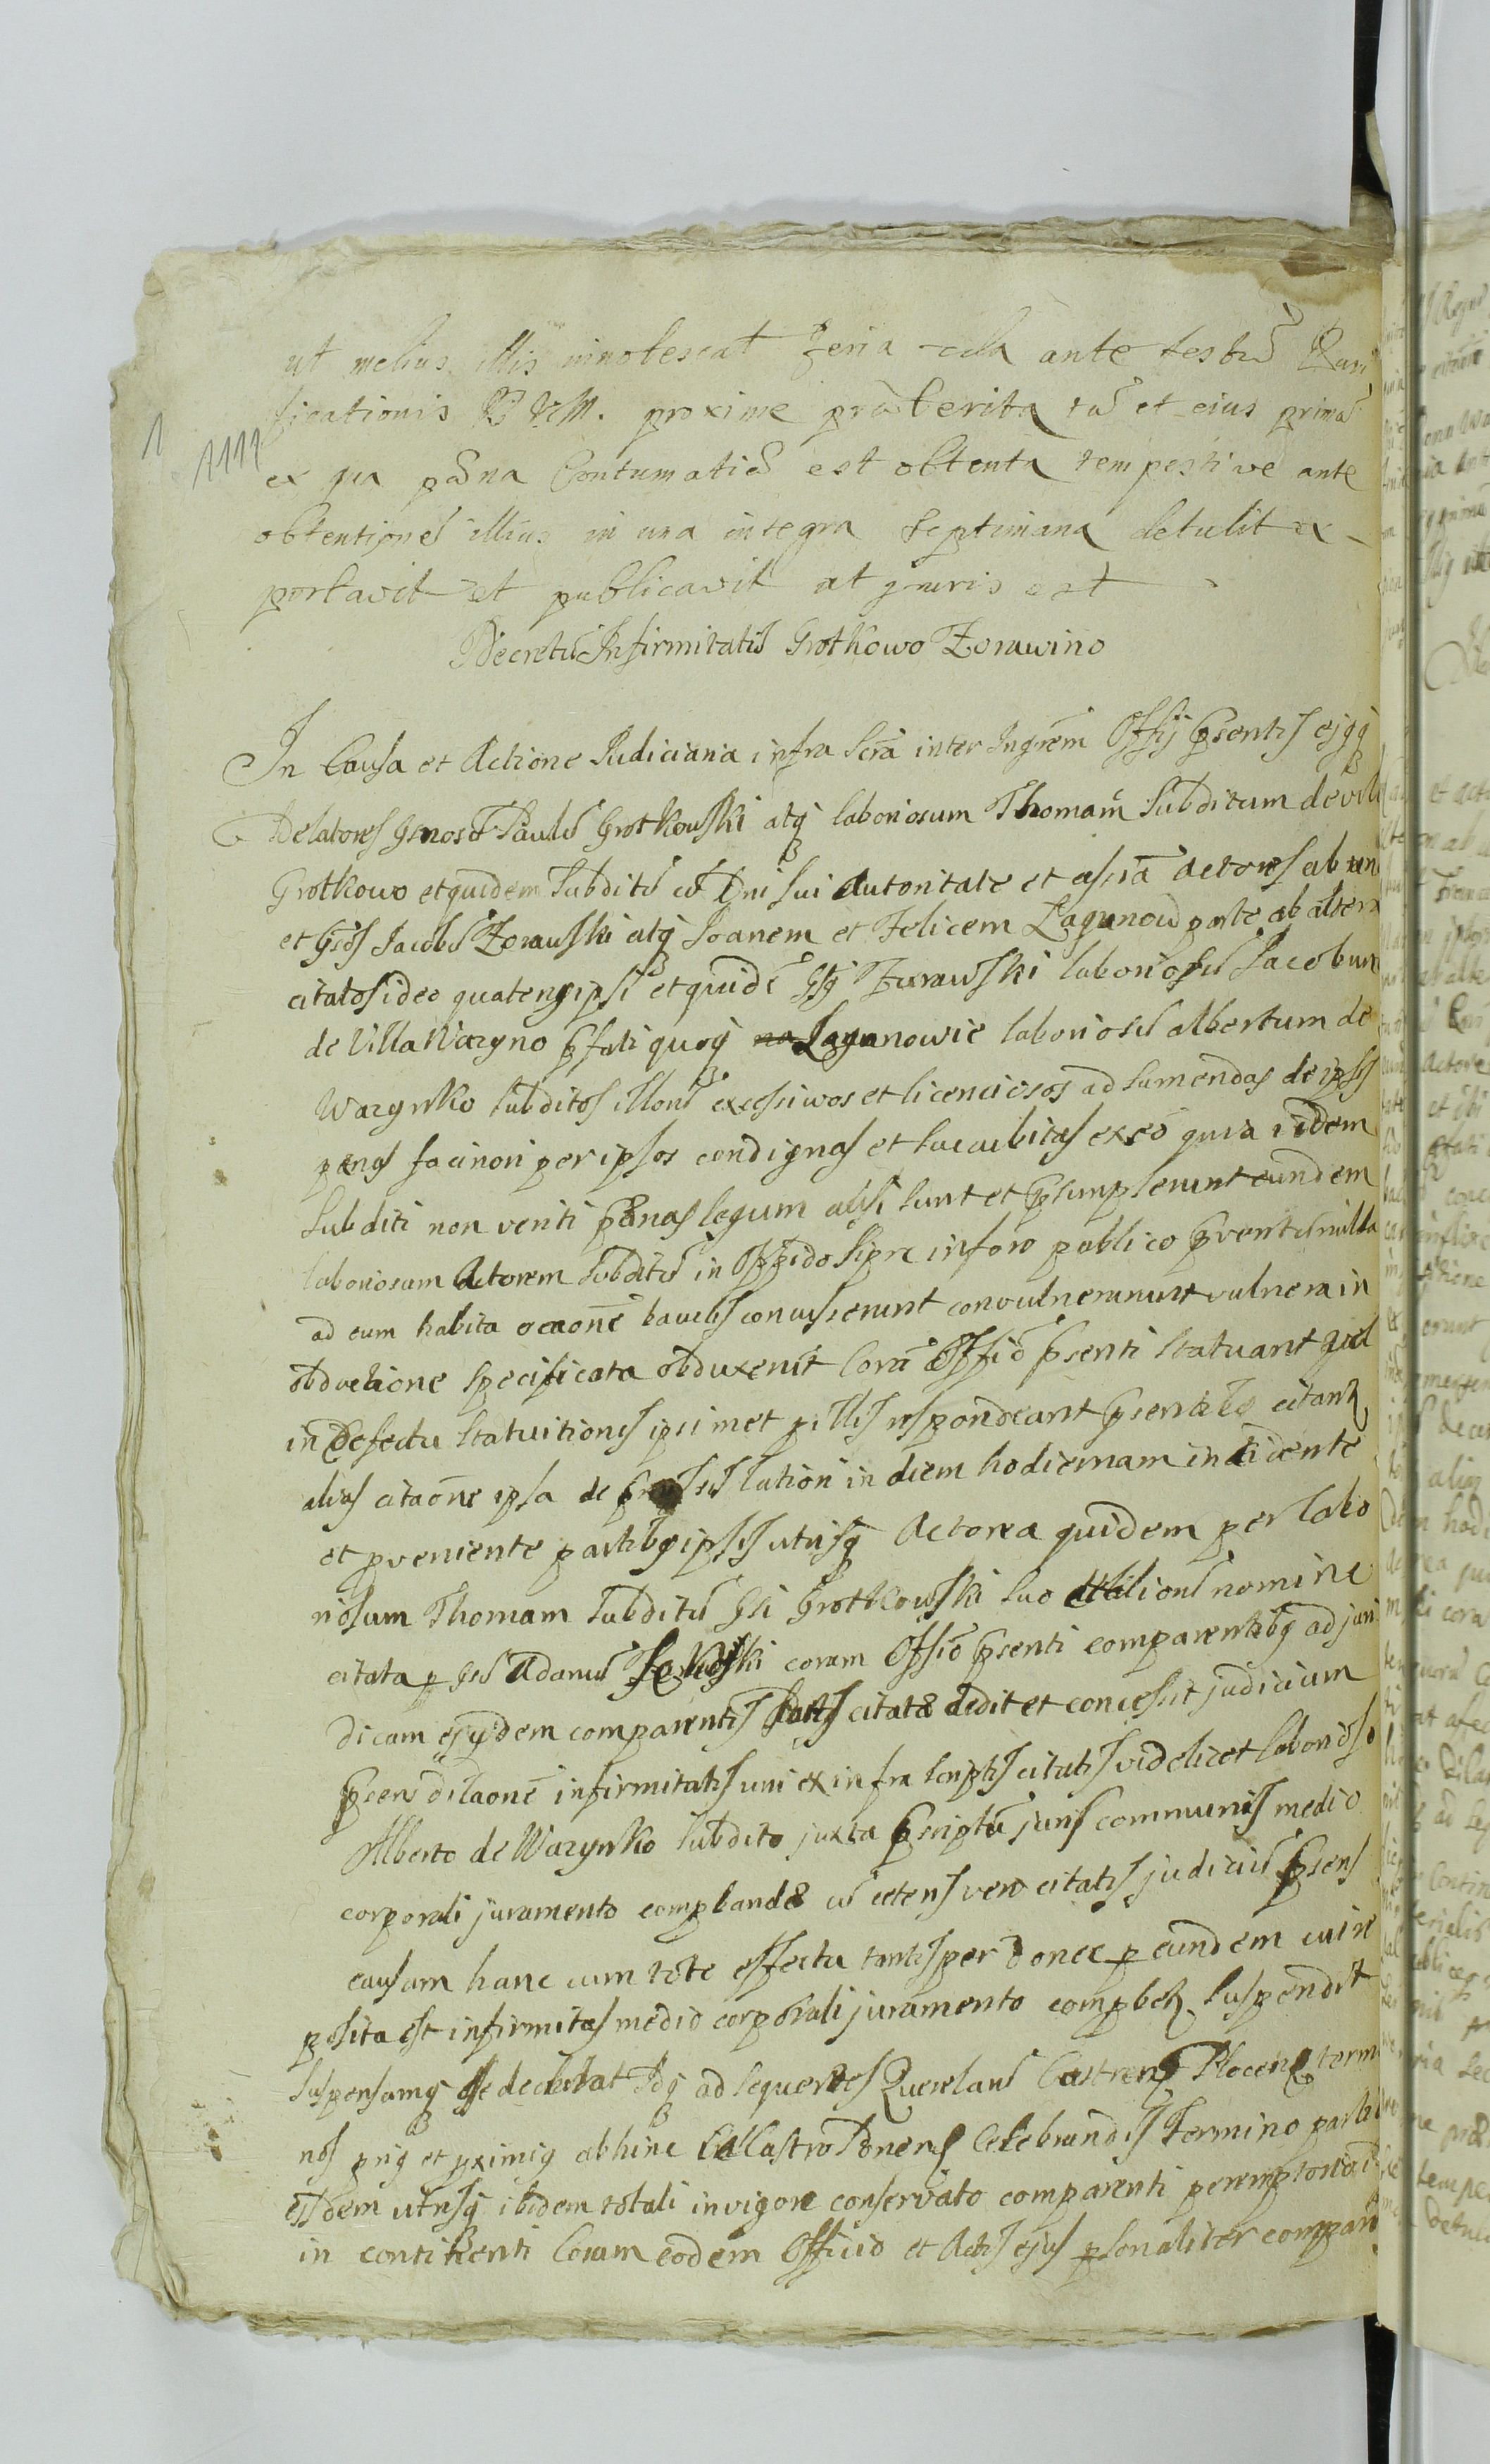 ut melius illis innotescat feria 2da ante festũ Puri
ficationis B V M. proxime præterita rũ et eius prima
ex qua pæna Contumatiæ est obtenta tempestive ante
obtentionẽ illius in una integra septimana detulit ex
portavit et publicavit ut juris est
Decretũ Infirmitatis Grotkowo Zorawino
In Causa et Actione Judiciaria infra Scra inter Ingrem Offij Psentis ejqq
Delatores Gnosũ Paulũ Grotkowski atq laboriosum Thomam Subditum de villa
Grotkowo et quidem Subditũ cũ Dni sui autoritate et assia Actores ab una
et Gsos Jacobũ Zorawski atq Joanem et Felicem Lagunow parte ab altera
citatos ideo quatenq ipsi et quidẽ Gsq Zurawski laboriosũ Jacobum
de Villa Wazyno Pfati quoq Lagunowie laboriosũ albertum de
Wazynko subditos illorũ excessivos et licenciosos ad sumendas de ipsis
penas facinori per ipsos condignas et luculitas exeo quia iidem
Subditi non veriti pænas legum ausi sunt et Psumpserunt eundem
laboriosum Actorem Subditũ in Oppido Sipre in foro publico Pventũ nulla
ad eum habita ocaone baculis concusserunt convulnerarunt vulnera in
obductione specificata obduxerũt Corã Offio Psenti statuant vel
in defectu statuitionis ipsimet p illis respondeant Psentibs citant
alias citaone ipsa de lation in diem hodiernam incidente
et pveniente partibq ipsis utrisq Actorea quidem per labo
riosum Thomam Subditũ Gsi Grotkowski suo et aliorũ nomine
citata p Gsũ Adamũ coram Offio Psenti comparentibq ad juri
dicam ejqdem comparentis Partis citatæ dedit et concessit judicium
Psens dilaonẽ infirmitatis uni ex infra scriptis citatis videlicet laborioso
Alberto de Wazynko Subdito juxta Pscriptũ juris communis medio
corporali juramento compbandæ cũ ceteris vero citatis judiciũ Psens
causam hanc cum toto effectu tantisper donec p eundem cui re
posita est infirmitas medio corporali juramento compbet suspendit
suspensamq esse declarat Idq ad sequentes Querelarũ Castren Plocen termi
nos pnq et pximiq abhinc in Castro Celebrandis Termino partibq
ejsdem utrisq ibidem totali in vigore conservato comparenti peremptorio
in continenti Coram eodem Officio et Actis ejus psonaliter comparen
1
1111